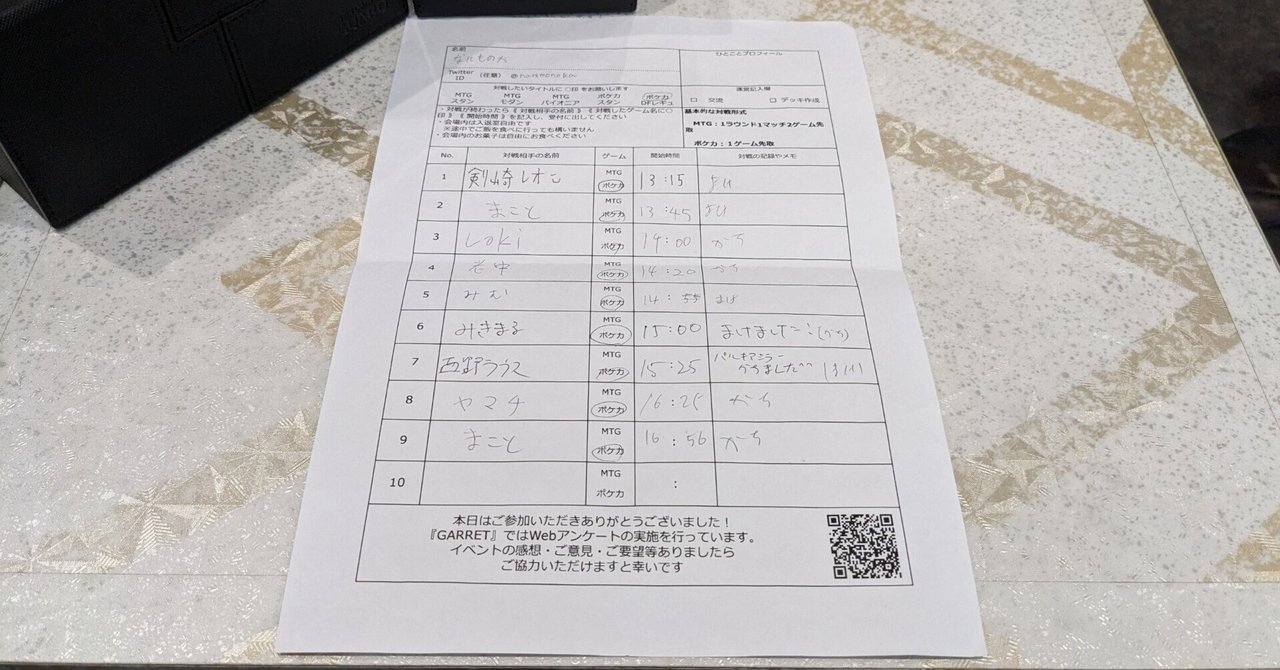 名前
なれもの木
ひとことプロフィール
Twitter ID (任意)
対戦したいタイトルに 〇印 をお願いします
MTG スタン
MTG モダン
MTG パイオニア
ポケカ スタン
ポケカ DFレギュ
運営記入欄
☐ 交流 ☐ デッキ作成
・対戦が終わったら《 対戦相手の名前 》《 対戦したゲーム名に〇印 》《 開始時間 》を記入し、受付に出してください
・会場内は入退室自由です
※途中でご飯を食べに行っても構いません
・会場内のお菓子は自由にお食べください
基本的な対戦形式
MTG：1ラウンド1マッチ2ゲーム先取
ポケカ：1ゲーム先取
No. 対戦相手の名前 ゲーム 開始時間 対戦の記録やメモ
1 剣崎レオン MTG ポケカ 13:15 まけ
2 まこと MTG ポケカ 13:45 まけ
3 Loki MTG ポケカ 14:00 かち
4 老中 MTG ポケカ 14:20 かち
5 みむ MTG ポケカ 14:55 まけ
6 みきまる MTG ポケカ 15:00 まけました!(かち)
7 西野ラウス MTG ポケカ 15:25 パルキアミラー かちました^^
8 ヤマチ MTG ポケカ 16:25 かち
9 まこと MTG ポケカ 16:56 かち
10 MTG ポケカ :
本日はご参加いただきありがとうございました！
『GARRET』ではWebアンケートの実施を行っています。
イベントの感想・ご意見・ご要望等ありましたら
ご協力いただけますと幸いです